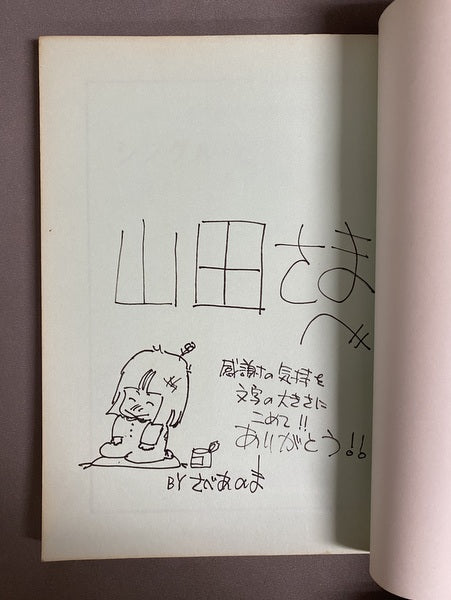 山田さま
へ
感謝の気持を
文字の大きさに
こめて!!
ありがとう!!
BY さべあのま